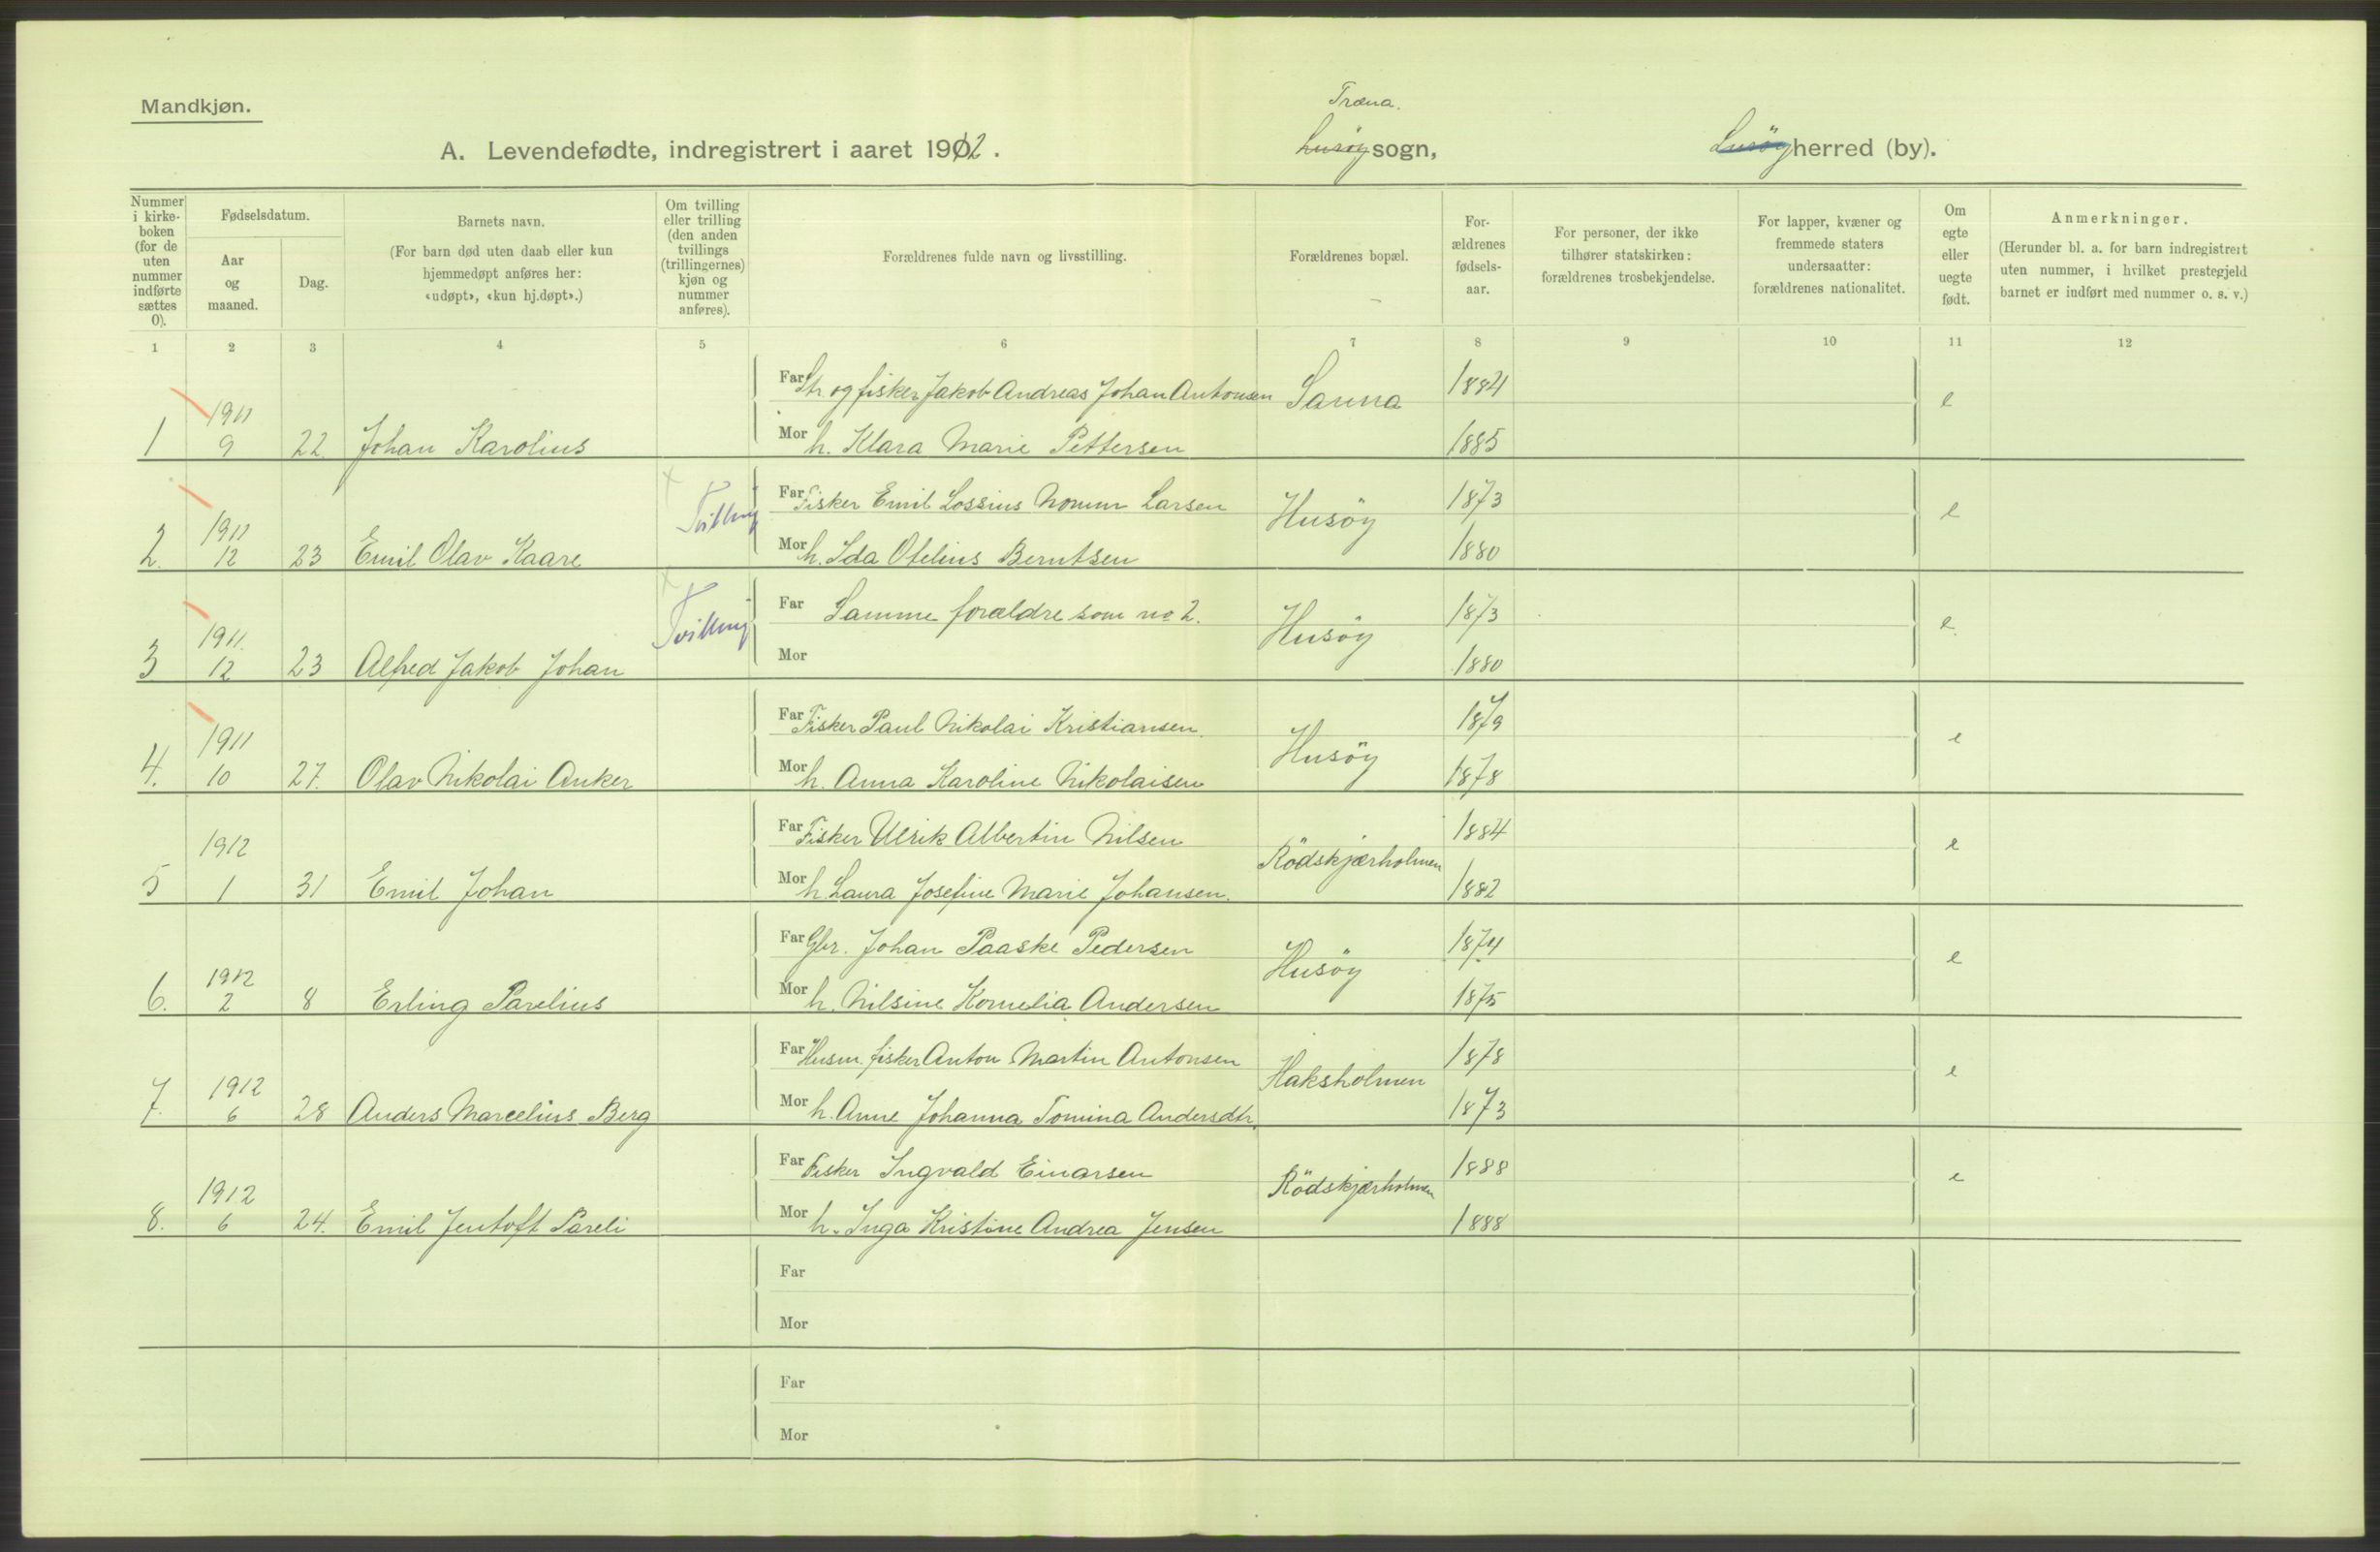 Mandkjøn.
Træna.
A. Levendefødte, indregistrert i aaret 1912. Lurøy sogn, Lurøy herred (by).
Nummer i kirke-boken (for de uten nummer indførte sættes 0).
Fødselsdatum.
Aar og maaned.
Dag.
Barnets navn.
(For barn død uten daab eller kun hjemmedøpt anføres her: «udøpt», «kun hj.døpt».)
Om tvilling eller trilling (den anden tvillings (trillingernes) kjøn og nummer anføres).
Forældrenes fulde navn og livsstilling.
Forældrenes bopæl.
For-ældrenes fødsels-aar.
For personer, der ikke tilhører statskirken: forældrenes trosbekjendelse.
For lapper, kvæner og fremmede staters undersaatter: forældrenes nationalitet.
Om egte eller uegte født.
Anmerkninger.
(Herunder bl. a. for barn indregistrert uten nummer, i hvilket prestegjeld barnet er indført med nummer o. s. v.)
1 2 3 4 5 6 7 8 9 10 11 12
Far Str og fisker Jakob Andreas Johan Antonsen Sanna 1884 e
1 1911 9 22 Johan Karolius Mor h. Klara Marie Pettersen 1885
Tvilling Far Fisker Emil Lossius Larsen Husöy 1873 e
2. 1911 12 23 Emil Olav Kaare Mor h. Ida Otelius Berntsen 1880
Tvilling Far Samme forældre som no 2. Husöy 1873 e.
3 1911. 12 23 Alfred Jakob Johan Mor 1880
Far Fisker Paul Nikolai Kristiansen. Husöy 1879 e
4. 1911 10 27. Olav Nikolai Anker Mor h. Anna Karoline Nikolaisen 1878
Far Fisker Ulrik Albertin Nilsen Rödskjærholmen 1884 e
5 1912 1 31 Emil Johan Mor h. Laura Josefine Marie Johansen. 1882
Far Gbr. Johan Paaske Pedersen Husöy 1874 e
6. 1912 2 8 Erling Parelius Mor h. Nilsine Kornelia Andersen 1875
Far Husm. fisker Anton Martin Antonsen Haksholmen 1878 e
7. 1912 6 28 Anders Marcelius Berg Mor h. Anne Johanna Tomina Andersdtr. 1873
Far Fisker Ingvald Einarsen Rödskjærholmen 1888 e
8. 1912 6 24. Emil Jentoft Pareli Mor h. Inga Kristine Andrea Jensen 1888
Far
Mor
Far
Mor